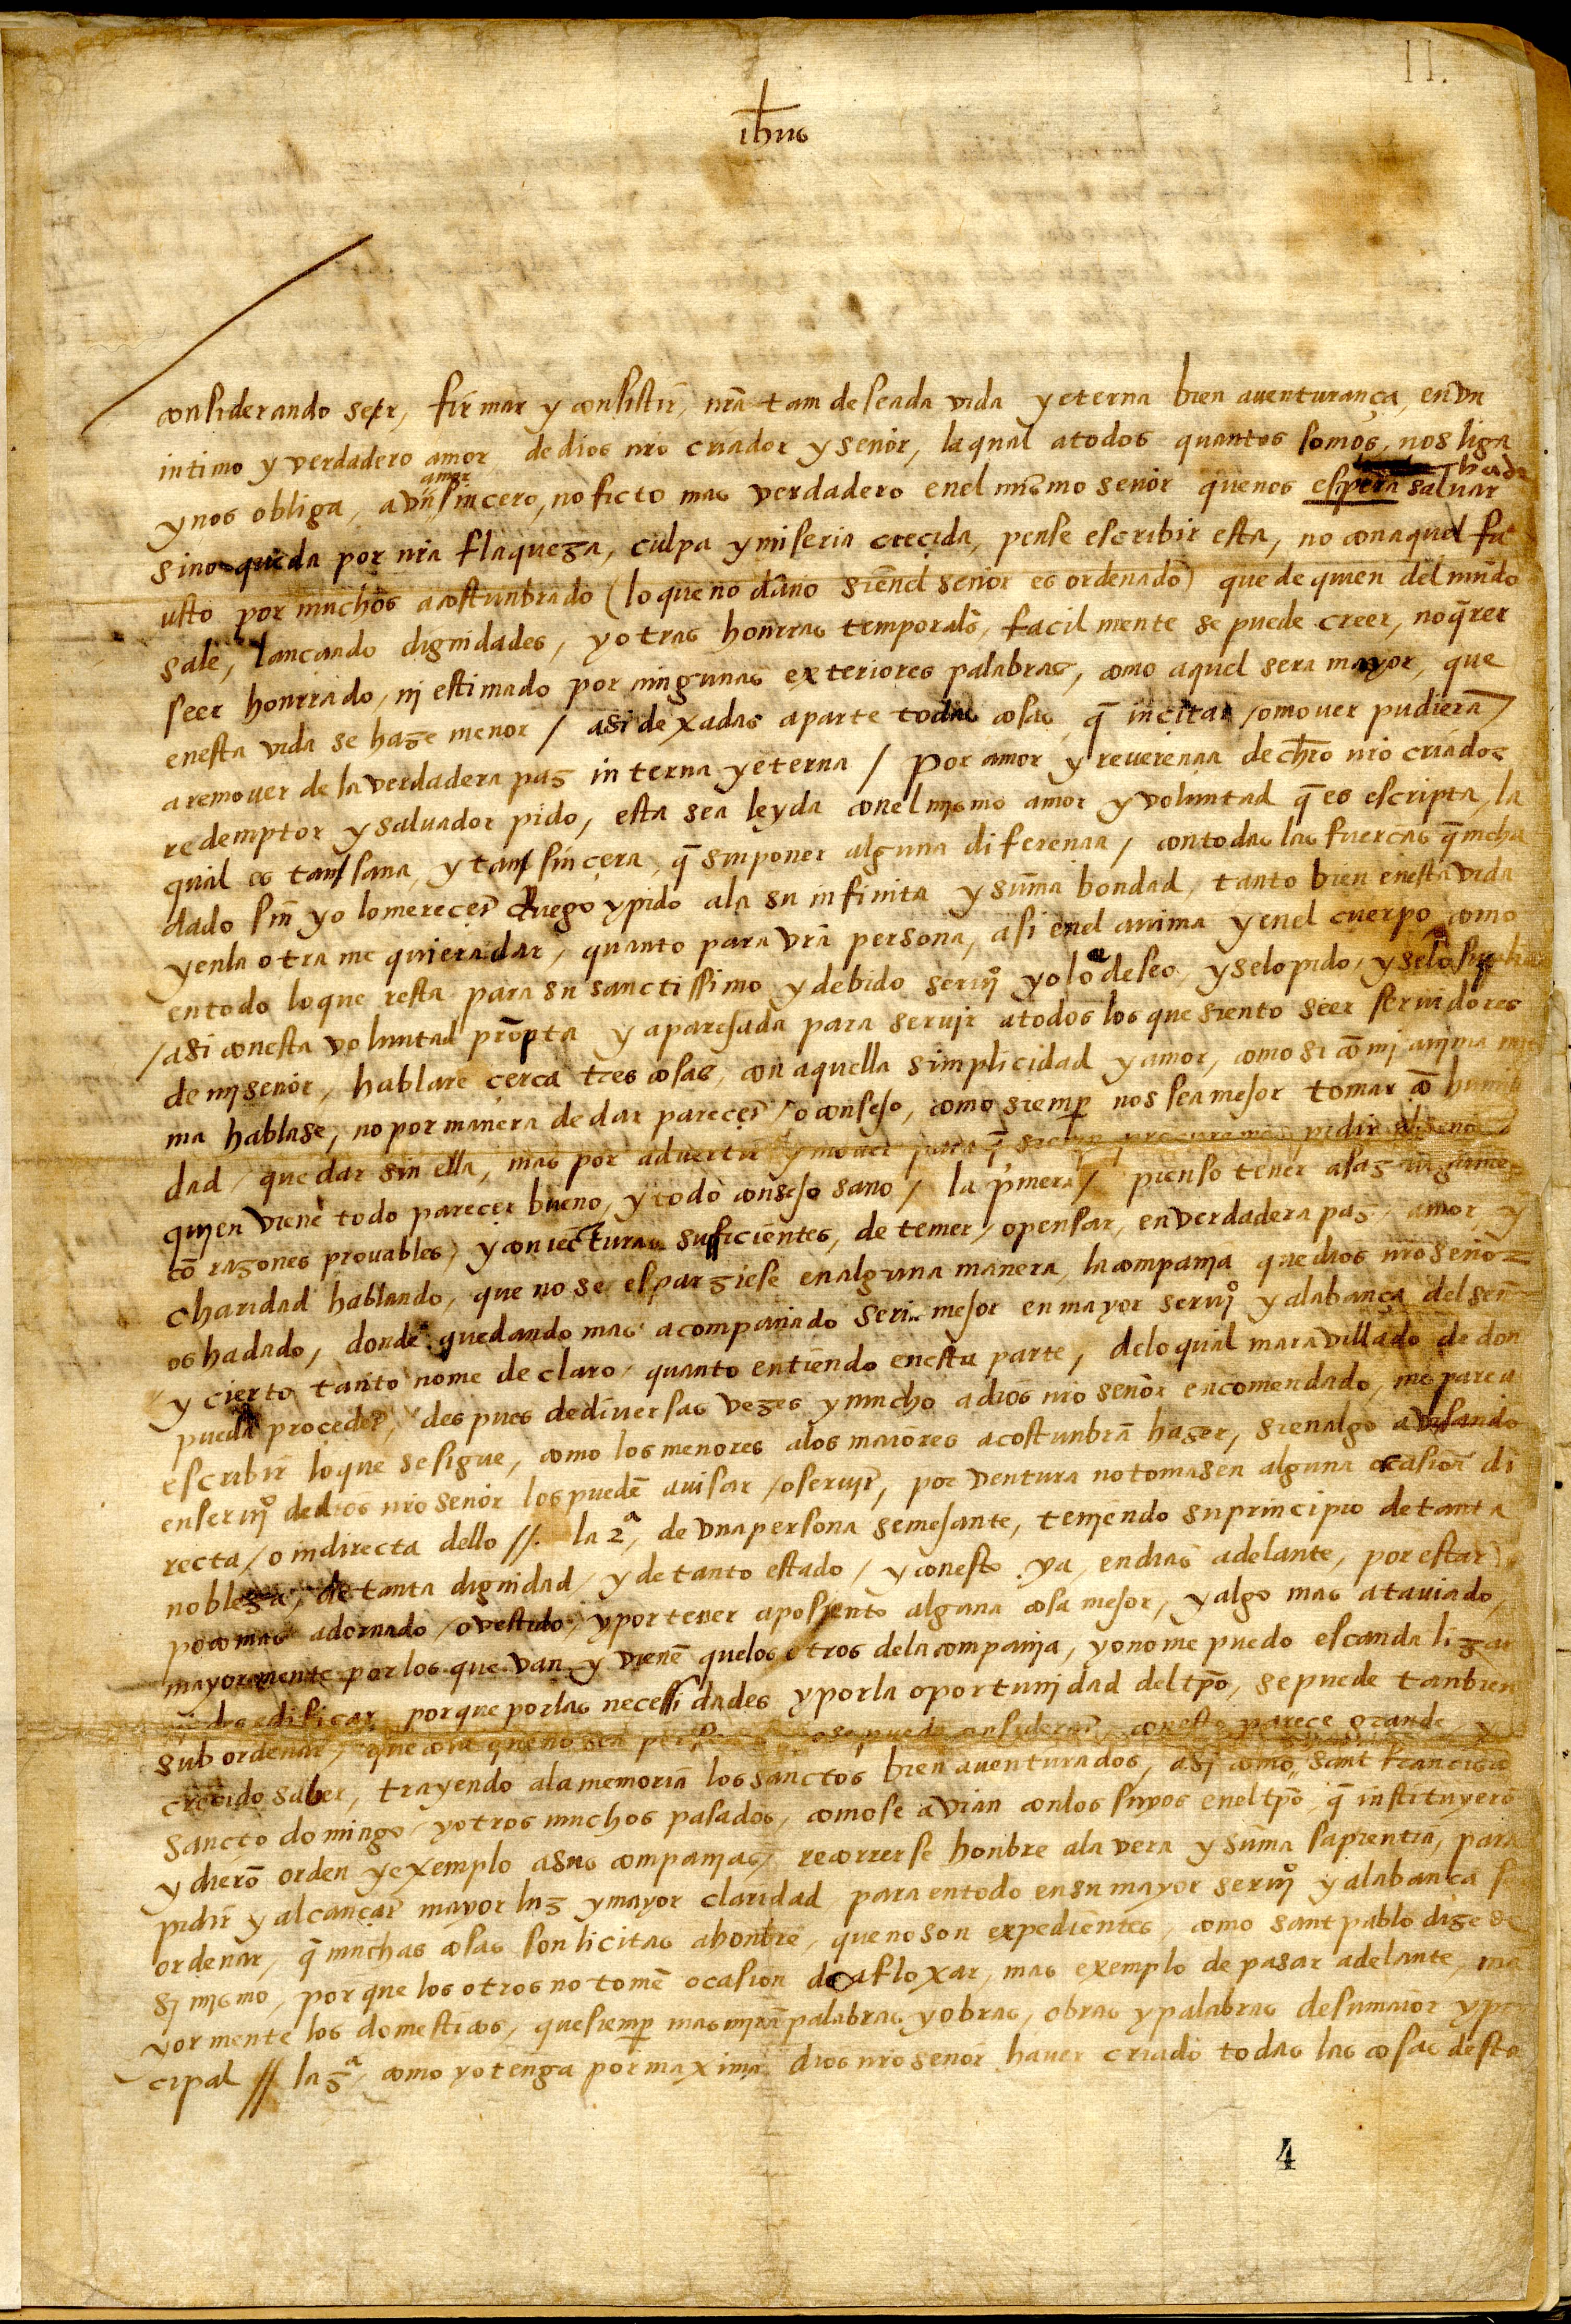 11.
ihus
considerando seer, firmar y consistir, nra tam deseada vida y eterna bien aventurança, en vn
intimo y verdadero amor de dios nro criador y señor, la qual a todos quantos somos, nos liga
y nos obliga, a vn amor sincero, no ficto mas verdadero en el mismo señor que nos espera saluar
si no queda por nra flaqueza, culpa y miseria crecida, pense escribir esta, no con aquel fa
usto por muchos acostunbrado (lo que no daño si en el señor es ordenado) que de quien del mundo
sale, lançando dignidades, y otras honrras temporales, facilmente se puede creer, no qrer
seer honrrado, ni estimado por ningunas exteriores palabras, como aquel sera mayor, que
en esta vida se haze menor / asi dexadas aparte todas cosas q incitar / o mouer pudiera
a remouer de la verdadera paz interna y eterna / por amor y reuerencia de chro nro criador
redemptor y saluador pido, esta sea leyda con el mismo amor y voluntad q es escripta, la
qual es tan sana, y tan sincera, q sin poner alguna diferencia / con todas las fuerças q me ha
dado sin yo lo merecer ruego y pido a la su infinita y suma bondad, tanto bien en esta vida
y en la otra me quiera dar, quanto para vra persona, asi en el anima y en el cuerpo como
en todo lo que resta para su sanctissimo y debido serui° yo lo deseo, y se lo pido, y se lo suplico
/ asi con esta voluntad prompta y aparejada para seruir a todos los que siento seer seruidores
de mi señor, hablare çerca tres cosas, con aquella simplicidad y amor, como si co mi anima mis
ma hablase, no por manera de dar parecer / o consejo, como siemp nos sea mejor tomar co humil
dad / que dar sin ella, mas por aduertir y mouer para q siemp procuremos pidir al señor
quien viene todo parecer bueno, y todo consejo sano / la pmera / pienso tener asaz argume
co razones prouables, y coniecturas sufficientes, de temer / o pensar, en verdadera paz, amor, y
charidad hablando, que no se esparziese en alguna manera, la compañia que dios nro señor
os ha dado, donde quedando mas acompañado seri mejor en mayor serui° y alabança del señ
y cierto tanto no me declaro / quanto entiendo en esta parte, de lo qual marauillado de don
pueda proceder, despues de diuersas vezes y mucho a dios nro señor encomendado, me parecia
escribir lo que se sigue, como los menores a los maiores acostunbra hazer, si en algo avisando
en serui° de dios nro señor los puede auisar / o seruir, por ventura no tomasen alguna ocasion di
recta / o indirecta dello //. la 2ª, de vna persona semejante, teniendo su principio de tanta
nobleza, de tanta dignidad / y de tanto estado / y con esto ya, en dias adelante, por estar
poco mas adornado / o vestido, y por tener aposiento alguna cosa mejor, y algo mas atauiado,
mayormente por los que van y viene que los otros de la compañia, yo no me puedo escandalizar
ni desedificar porque por las necessidades y por la oportunidad del tpo, se puede tanbien
sub ordenar, que cosa que no sea perfecta se pueda considerar, con esto parece grande y
crecido saber, trayendo a la memoria los sanctos bien auenturados, asi como sant francisco
sancto domingo y otros muchos pasados, como se avian con los suyos en el tpo q instituyero
y diero orden y exemplo a sus compañias, recorrerse honbre a la vera y suma sapientia, para
pidir y alcançar mayor luz y mayor claridad para en todo en su mayor serui° y alabança se
ordenar, q muchas cosas son licitas a honbre, que no son expedientes, como sant pablo dize de
si mismo, por que los otros no tome ocasion de afloxar, mas exemplo de pasar adelante, ma
yormente los domesticos, que siemp mas mira palabras y obras, obras y palabras de su maior y prin
cipal // la 3ª, como yo tenga por maxima dios nro señor hauer criado todas las cosas desta
4